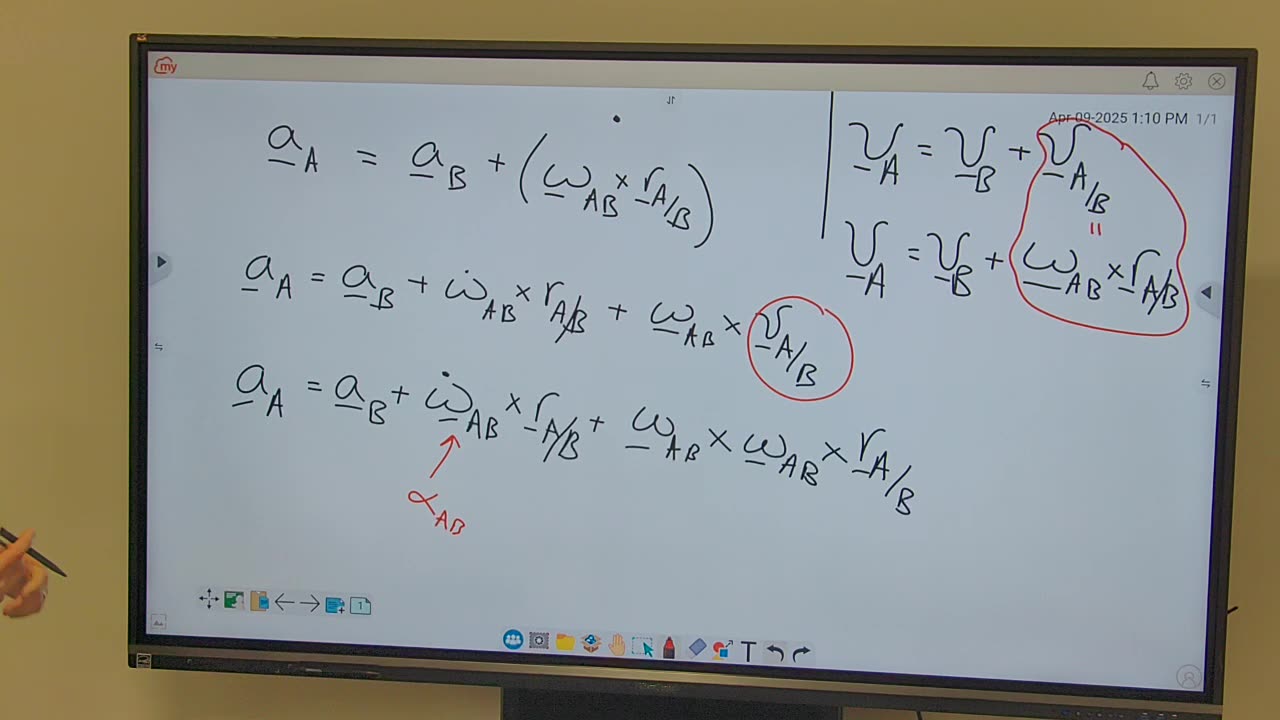 my
Apr-09-2025 1:10 PM 1/1
a_A = a_B + (ω_AB × r_A/B)˙
a_A = a_B + ω̇_AB × r_A/B + ω_AB × v_A/B
a_A = a_B + ω̇_AB × r_A/B + ω_AB × ω_AB × r_A/B
α_AB
v_A = v_B + v_A/B
=
v_A = v_B + ω_AB × r_A/B
1
T